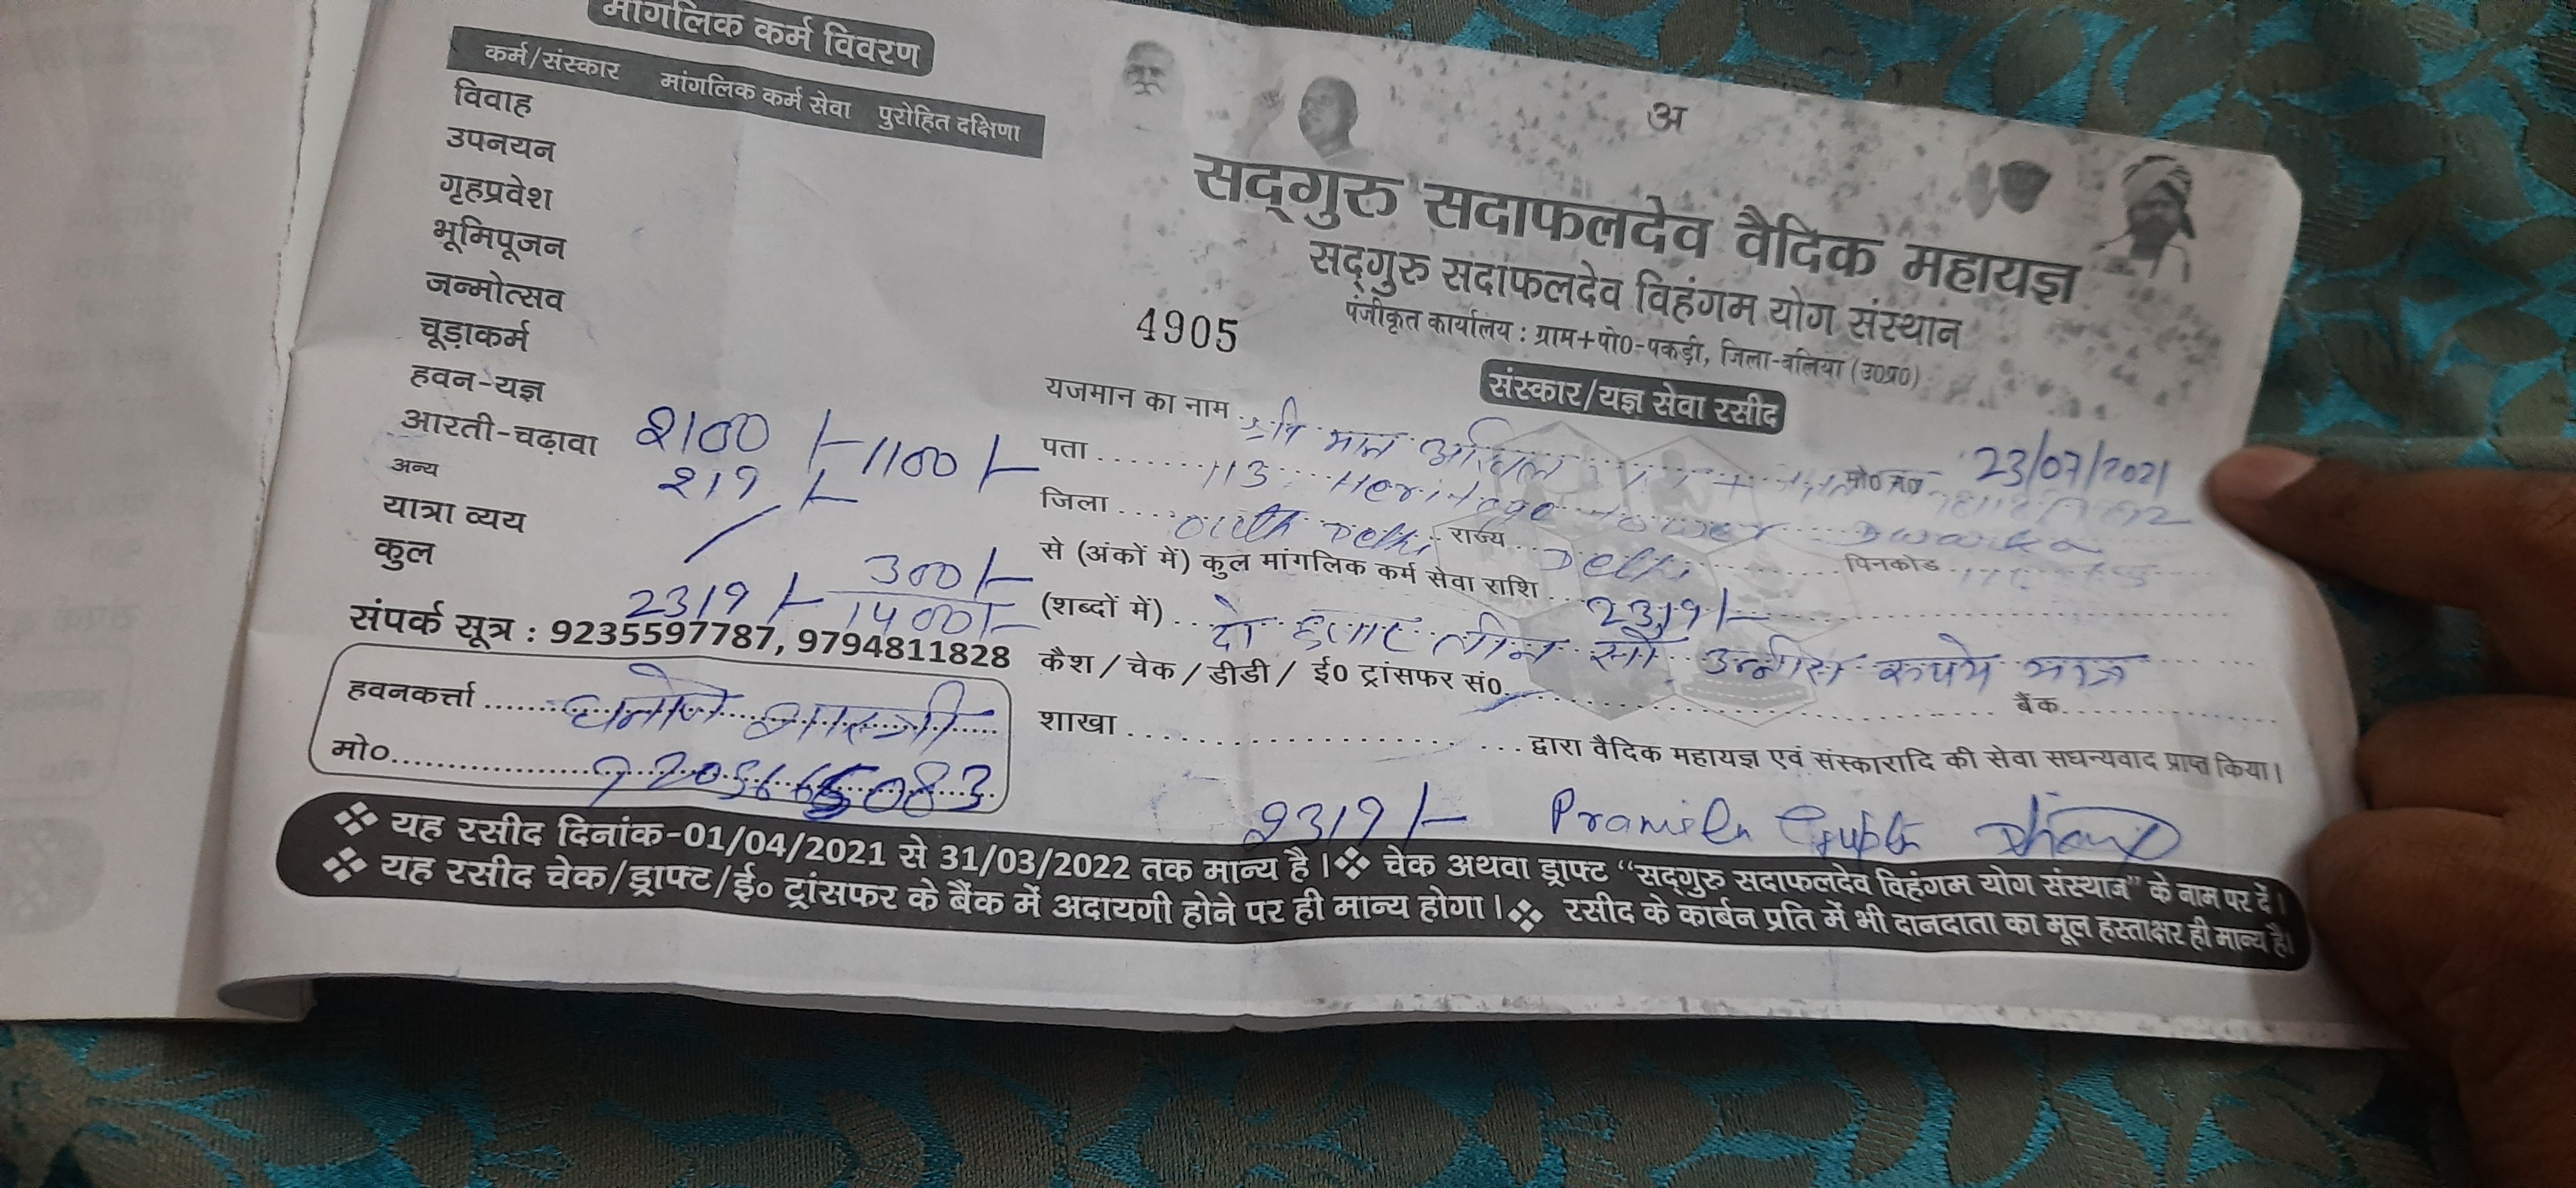 मांगलिक कर्म विवरण
कर्म/संस्कार मांगलिक कर्म सेवा पुरोहित दक्षिणा
विवाह
उपनयन
गृहप्रवेश
भूमिपूजन
जन्मोत्सव
चूड़ाकर्म
हवन-यज्ञ 2100/- 1100/-
आरती-चढ़ावा 219/-
अन्य
यात्रा व्यय 300/-
कुल 2319/- 1400/-
संपर्क सूत्र : 9235597787, 9794811828
हवनकर्त्ता
मो०
अ
सद्गुरु सदाफलदेव वैदिक महायज्ञ
सद्गुरु सदाफलदेव विहंगम योग संस्थान
पंजीकृत कार्यालय : ग्राम+पो0-पकड़ी, जिला-बलिया (उ0प्र0)
4905
संस्कार/यज्ञ सेवा रसीद
23/07/2021
यजमान का नाम
मो0 न0
पता 113 Heritage Tower Dwarka
जिला Delhi राज्य Delhi पिनकोड
से (अंकों में) कुल मांगलिक कर्म सेवा राशि 2319/-
(शब्दों में) दो हजार तीन सौ उन्नीस रूपये मात्र
कैश / चेक / डीडी / ई0 ट्रांसफर सं0 बैंक
शाखा द्वारा वैदिक महायज्ञ एवं संस्कारादि की सेवा सधन्यवाद प्राप्त किया।
2319/- Pramila Gupta
❖ यह रसीद दिनांक-01/04/2021 से 31/03/2022 तक मान्य है। ❖ चेक अथवा ड्राफ्ट “सद्गुरु सदाफलदेव विहंगम योग संस्थान” के नाम पर दें।
❖ यह रसीद चेक/ड्राफ्ट/ई० ट्रांसफर के बैंक में अदायगी होने पर ही मान्य होगा। ❖ रसीद के कार्बन प्रति में भी दानदाता का मूल हस्ताक्षर ही मान्य है।